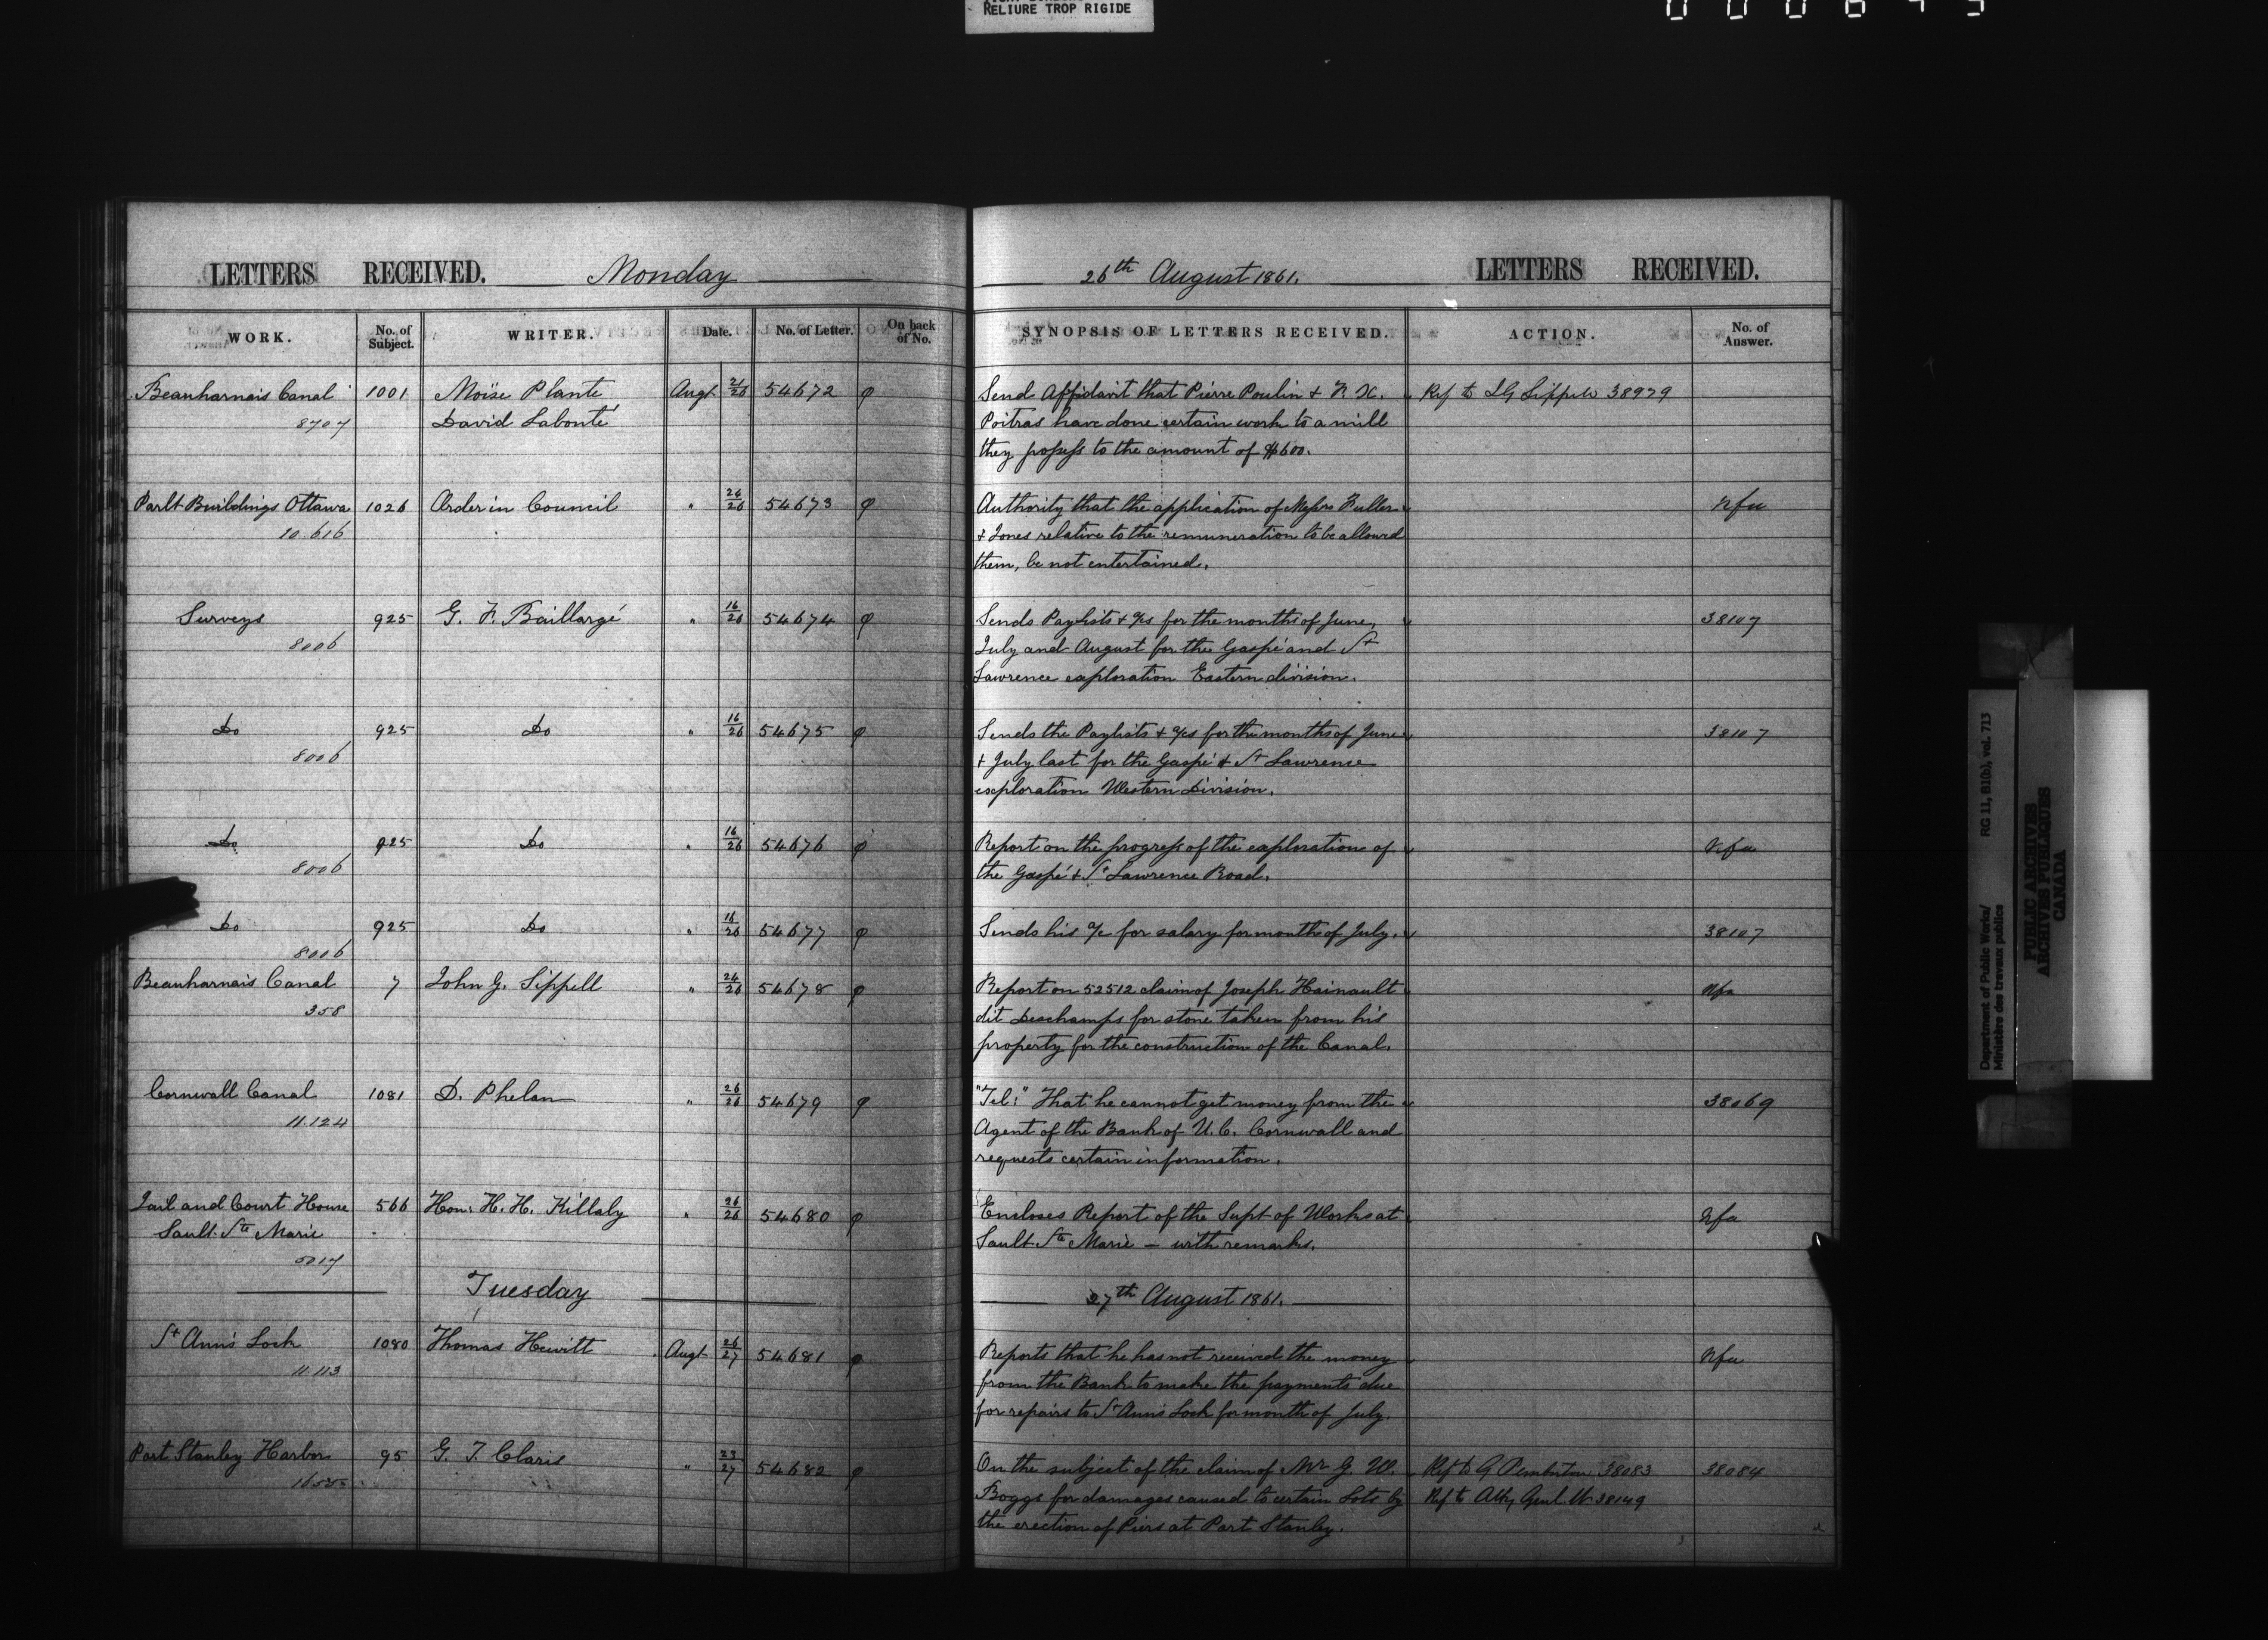 RELIURE TROP RIGIDE
LETTERS RECEIVED. Monday
WORK. No. of Subject. WRITER. Date. No. of Letter. On back of No.
Beauharnais Canal 1001 Moïse Plante Augt 21/26 54672 φ
8707 David Labonté
Parlt Buildings Ottawa 1026 Order in Council " 24/26 54673 φ
10.616
Surveys 925 G. F. Baillargé " 16/26 54674 φ
8006
Do 925 Do " 16/26 54675 φ
8006
Do 925 Do " 16/26 54676 φ
8006
Do 925 Do " 16/26 54677 φ
8006
Beauharnais Canal 7 John G. Sippell " 24/26 54678 φ
358
Cornwall Canal 1081 D. Phelan " 26/26 54679 φ
11.124
Jail and Court House 566 Hon. H. H. Killaly " 26/26 54680 φ
Sault Ste Marie
5017
Tuesday
St Ann's Lock 1080 Thomas Hewitt Augt 26/27 54681 φ
11.113
Port Stanley Harbor 95 G. T. Claris " 23/27 54682 φ
26th August 1861. LETTERS RECEIVED.
SYNOPSIS OF LETTERS RECEIVED. ACTION. No. of Answer.
Send Affidavit that Pierre Poulin & F. X. Ref to J G Sippell 38979
Poitras have done certain work to a mill
they possess to the amount of $600.
Authority that the application of Messrs Fuller Nfa
& Jones relative to the remuneration to be allowed
them, be not entertained.
Sends Paylists & a/cs for the months of June, 38107
July and August for the Gaspé and St
Lawrence exploration Eastern division.
Sends the Paylists & a/cs for the months of June 38107
& July last for the Gaspé & St Lawrence
exploration Western Division.
Report on the progress of the exploration of Nfa
the Gaspé & St Lawrence Road.
Sends his a/c for salary for month of July. 38107
Report on 52512 claim of Joseph Hainault Nfa
dit Deschamps for stone taken from his
property for the construction of the Canal.
"Tel:" That he cannot get money from the 38069
Agent of the Bank of U. C. Cornwall and
requests certain information.
Encloses Report of the Supt of Works at Nfa
Sault Ste Marie — with remarks.
27th August 1861.
Reports that he has not received the money Nfa
from the Bank to make the payments due
for repairs to St Ann's Lock for month of July.
On the subject of the claim of Mr G. W. Ref to A Pemberton 38083 38084
Boggs for damages caused to certain Lots by Ref to Atty Genl. W. 38149
the erection of Piers at Port Stanley.
Department of Public Works/ RG 11, B1(b), vol. 713
Ministère des travaux publics
PUBLIC ARCHIVES
ARCHIVES PUBLIQUES
CANADA